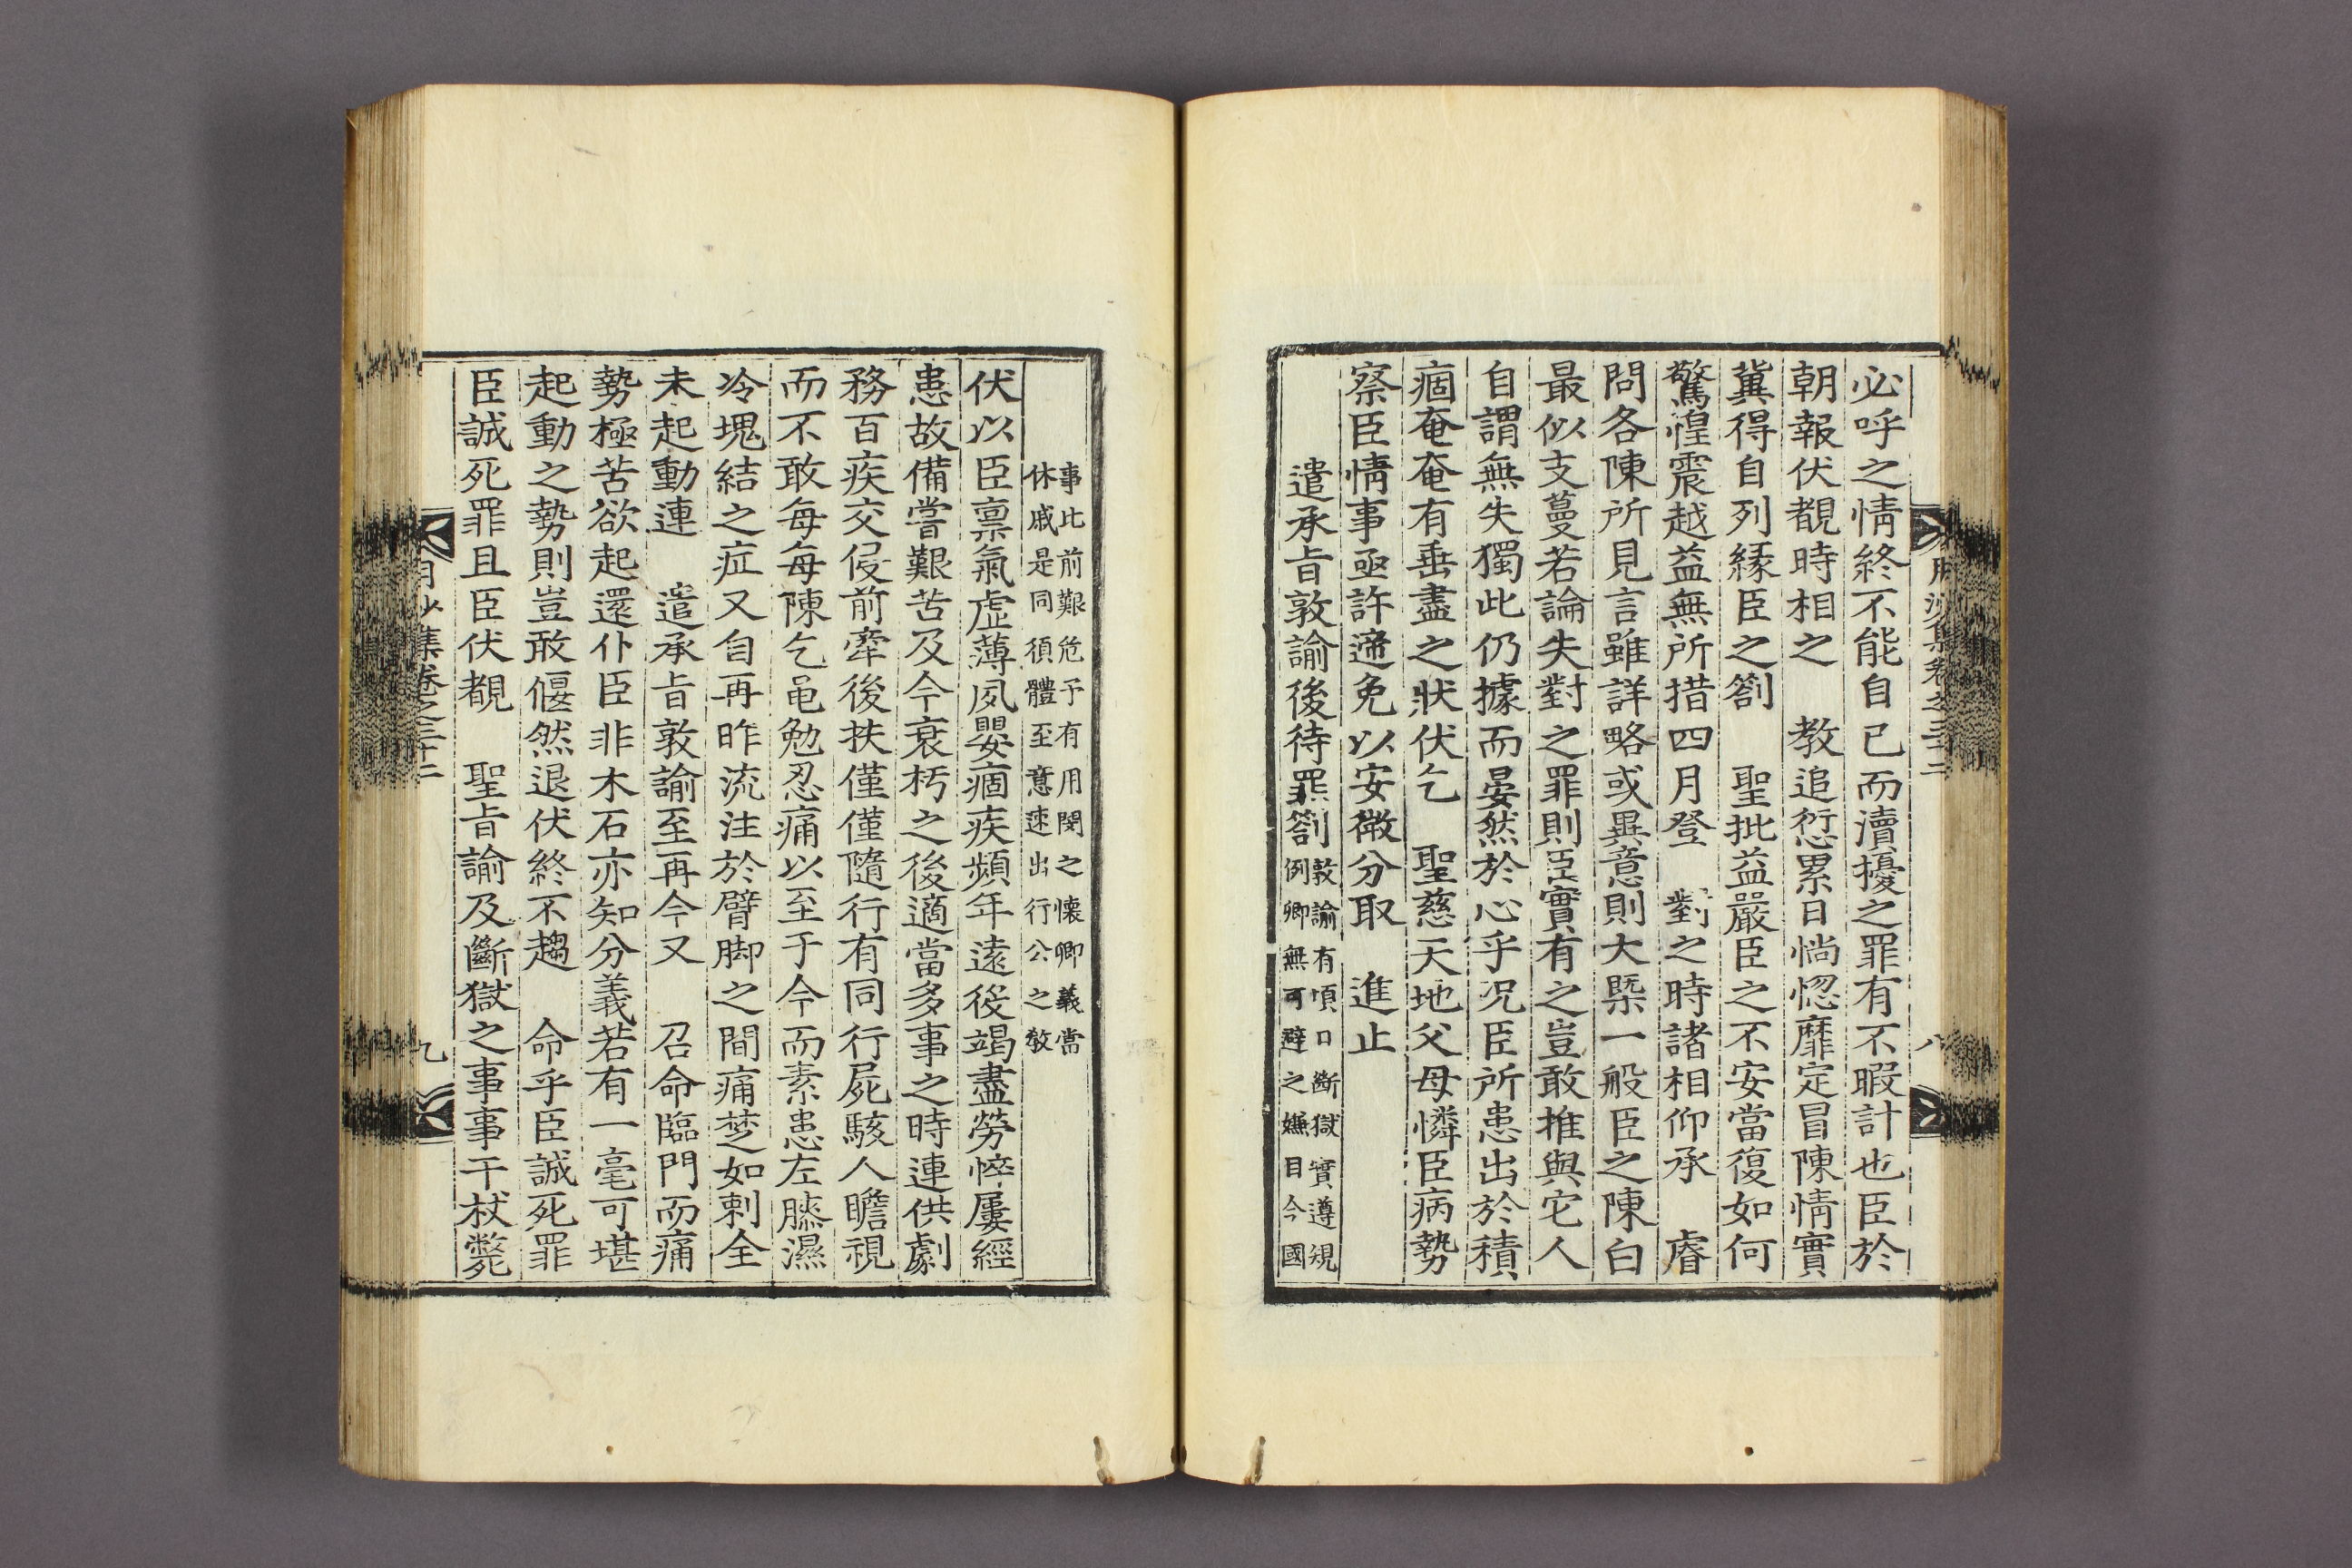 必呼之情終不能自已而瀆擾之罪有不暇計也臣於
朝報伏覩時相之　教追愆累日惝惚靡定冒陳情實
冀得自列緣臣之劄　聖批益嚴臣之不安當復如何
驚惶震越益無所措四月登　對之時諸相仰承　睿
問各陳所見言雖詳略或異意則大槩一般臣之陳白
最似支蔓若論失對之罪則臣實有之豈敢推與它人
自謂無失獨此仍據而晏然於心乎況臣所患出於積
痼奄奄有垂盡之狀伏乞　聖慈天地父母憐臣病勢
察臣情事亟許遞免以安微分取　進止
遣承旨敦諭後待罪劄
敦諭有頃日斷獄實遵規
例卿無可避之嫌目今國
事比前艱危予有用閔之懷卿義當
休戚是同須體至意速出行公之敎
伏以臣禀氣虛薄夙嬰痼疾頻年遠役竭盡勞悴屢經
患故備嘗艱苦及今衰朽之後適當多事之時連供劇
務百疾交侵前牽後扶僅僅隨行有同行屍駭人瞻視
而不敢每每陳乞黽勉忍痛以至于今而素患左膝濕
冷塊結之症又自再昨流注於臂脚之間痛楚如刺全
未起動連　遣承旨敦諭至再今又　召命臨門而痛
勢極苦欲起還仆臣非木石亦知分義若有一毫可堪
起動之勢則豈敢偃然退伏終不趨　命乎臣誠死罪
臣誠死罪且臣伏覩　聖旨諭及斷獄之事事干杖斃
月沙集卷之三十二
八
集卷之三十二
九